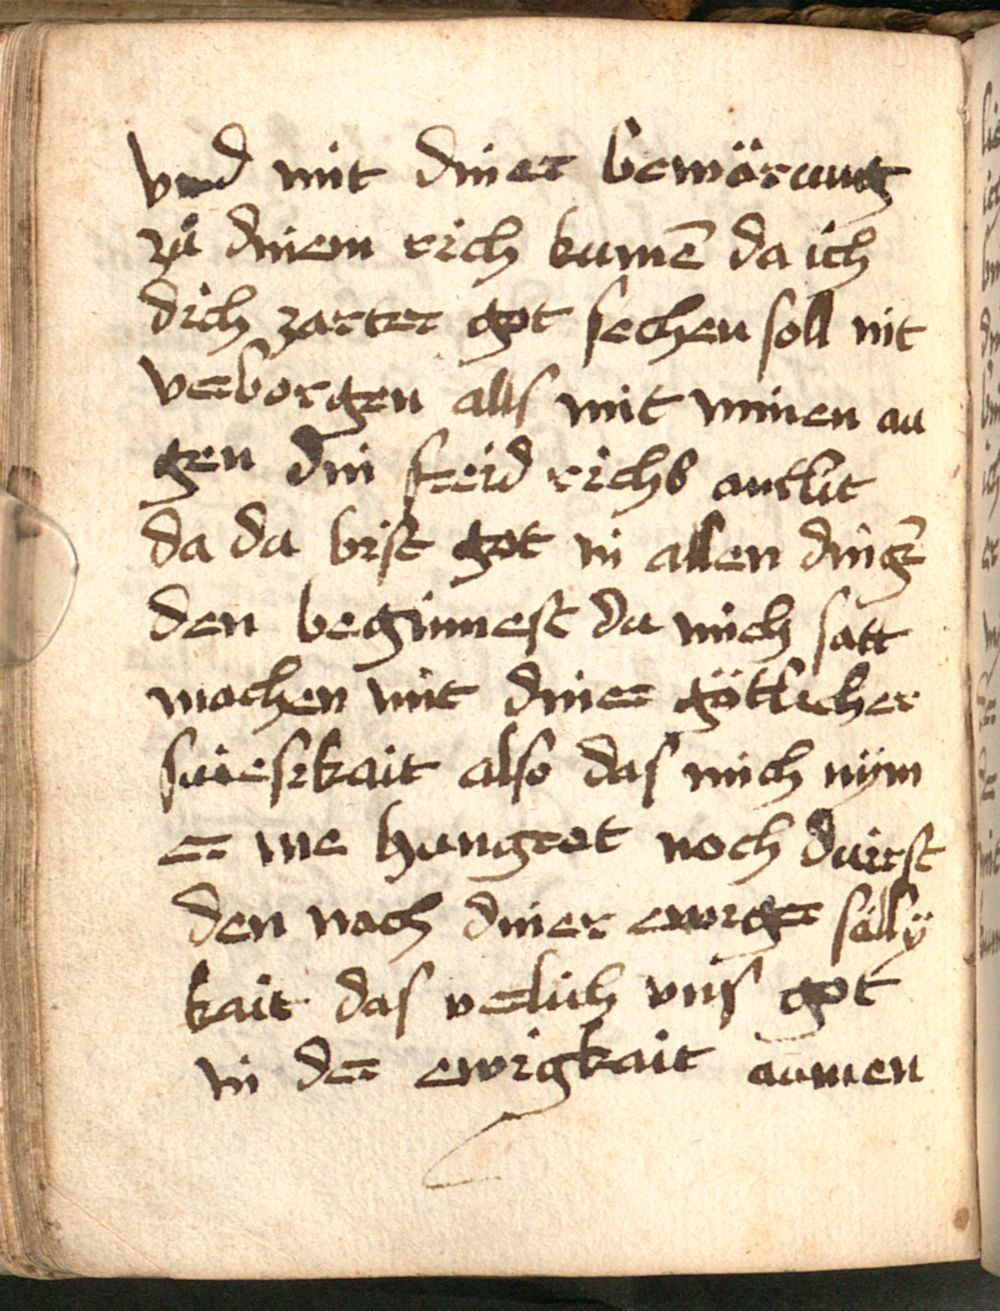 vnd mit diner bewörung
zů dinem rich kumē da ich
dich zarter got sechen soll nit
verborgen alls mit minen au
gen din freid richs antlit
da da bist got in allen dingē
den beginnest du mich satt
machen mit diner götlicher
süeskait also das mich nÿm
er me hungret noch dürst
den nach diner ewiger sälly
kait das verlich vns got
in der ewigkait aumen